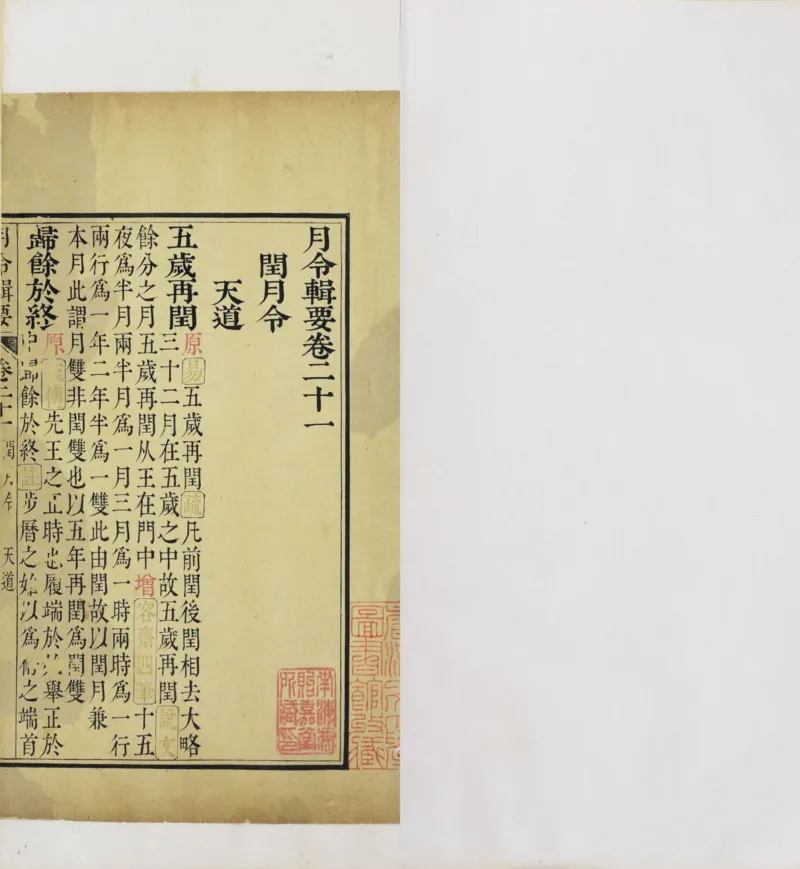 月令輯要卷二十一
閏月令
天道
五歲再閏
原易五歲再閏疏凡前閏後閏相去大略
三十二月在五歲之中故五歲再閏說文
餘分之月五歲再閏从王在門中增容齋四筆十五
夜爲半月兩半月爲一月三月爲一時兩時爲一行
兩行爲一年二年半爲一雙此由閏故以閏月兼
本月此謂月雙非閏雙也以五年再閏爲閏雙
歸餘於終
原傳先王之正時也履端於始舉正於
中歸餘於終註步曆之始以爲術之端首
月令輯要 卷二十一 閏月令 天道